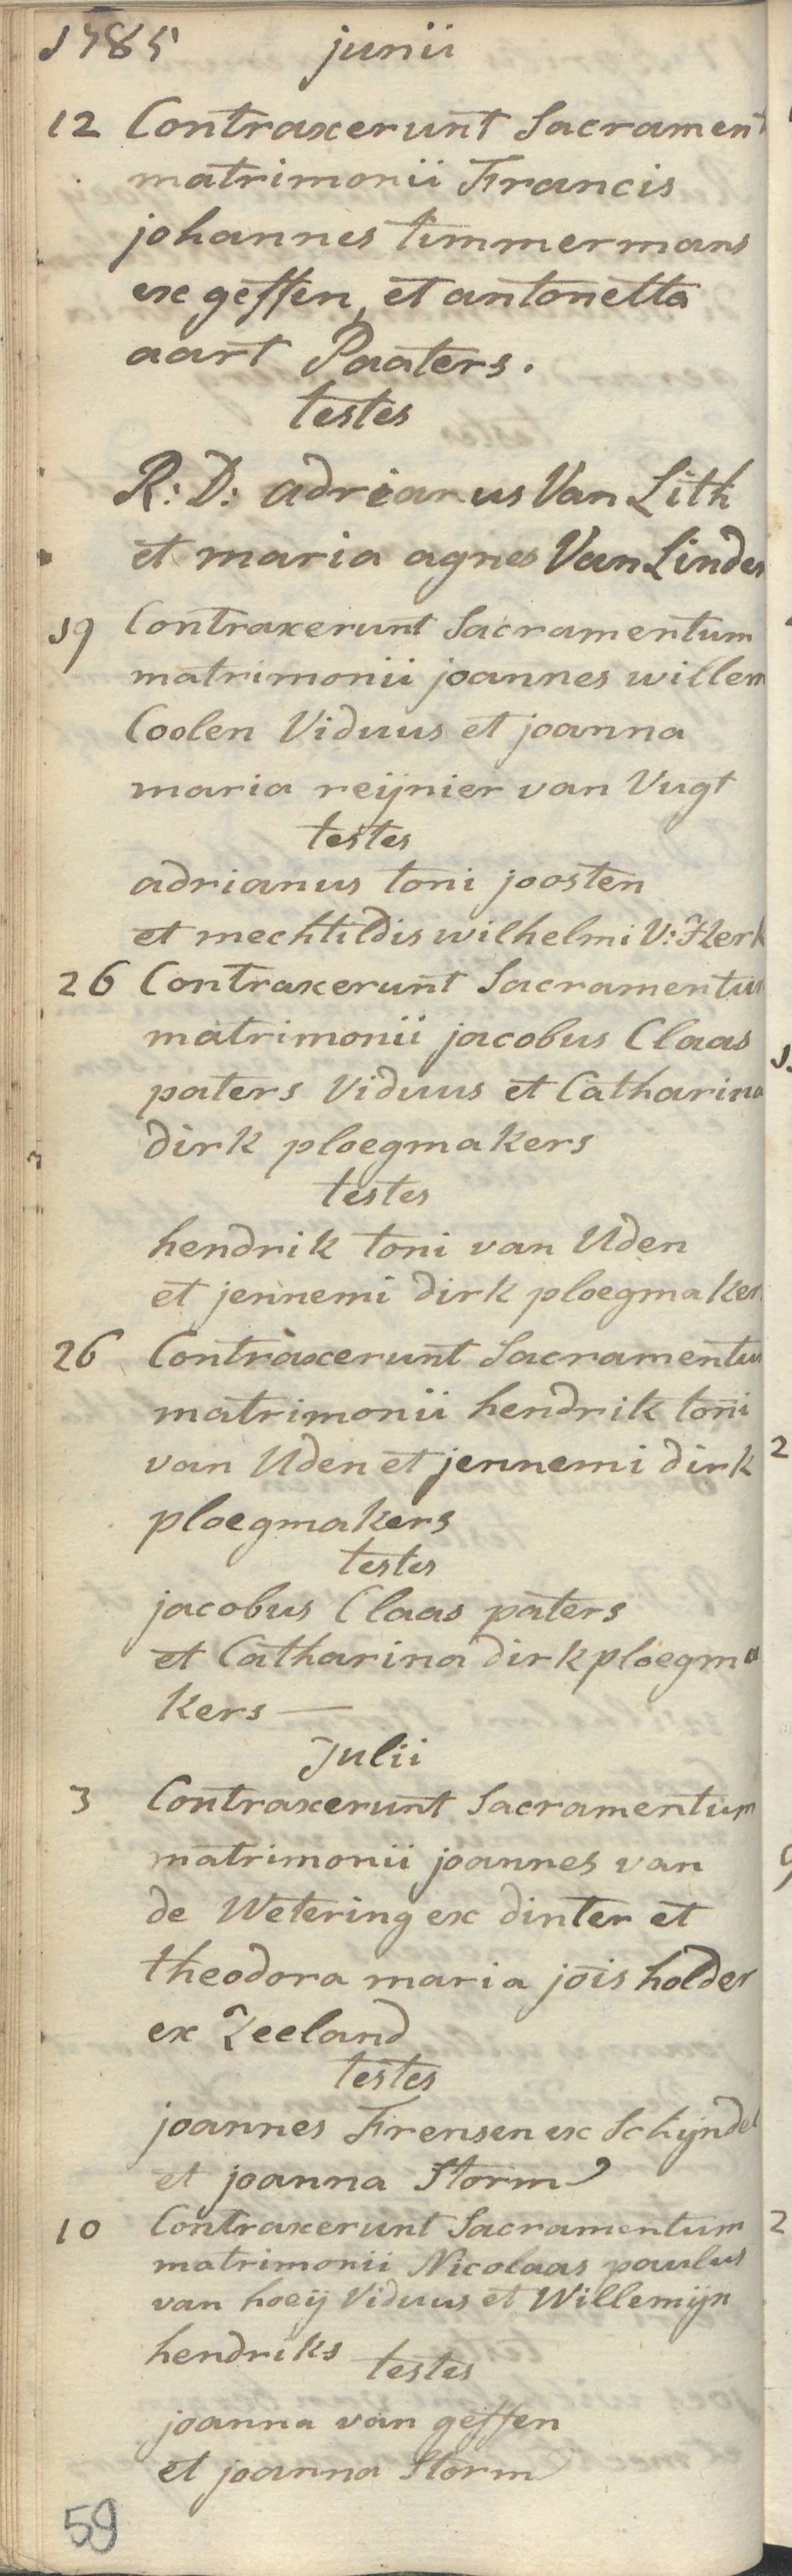 1785 junii
12 Contraxerunt Sacrament
matrimonii Francis
johannes timmermans
ex geffen, et antonetta
aart Paaters.
testes
R: D: adrianus Van Lith
et maria agnes Van Linden
19 Contraxerunt Sacramentum
matrimonii joannes willem
Coolen Viduus et joanna
maria reijnier van Vugt
testes
adrianus toni joosten
et mechtildis wilhelmi V: Herk
26 Contraxerunt Sacramentum
matrimonii jacobus Claas
paters Viduus et Catharina
dirk ploegmakers
testes
hendrik toni van Uden
et jennemi dirk ploegmaker
26 Contraxerunt Sacramentum
matrimonii hendrik toni
van Uden et jennemi dirk
ploegmakers
testes
jacobus Claas paters
et Catharina dirk ploegma
kers —
Julii
3 Contraxerunt Sacramentum
matrimonii joannes van
de Wetering ex dinter et
theodora maria jois holder
ex Zeeland
testes
joannes Frensen ex Schijndel
et joanna Storm
10 Contraxerunt Sacramentum
matrimonii Nicolaas paulus
van hoeij Viduus et Willemijn
hendriks
testes
joanna van geffen
et joanna Storm
59